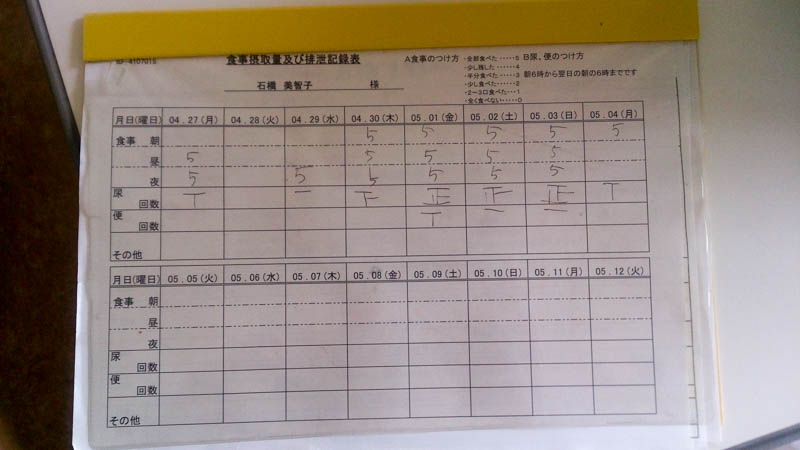 ID 4107015
食事摂取量及び排泄記録表
石橋 美智子 様
A食事のつけ方
・全部食べた ・・・・・・5
・少し残した ・・・・・・4
・半分食べた ・・・・・・3
・少し食べた ・・・・・・2
・2～3口食べた・・・1
・全く食べない・・・・・0
B尿、便のつけ方
朝6時から翌日の朝の6時までです
月日(曜日) 04.27(月) 04.28(火) 04.29(水) 04.30(木) 05.01(金) 05.02(土) 05.03(日) 05.04(月)
食事 朝 5 5 5 5 5
昼 5 5 5 5 5
夜 5 5 5 5 5 5
尿 回数 T 一 下 正 正 T
便 回数 T 一 一
その他
月日(曜日) 05.05(火) 05.06(水) 05.07(木) 05.08(金) 05.09(土) 05.10(日) 05.11(月) 05.12(火)
食事 朝
昼
夜
尿 回数
便 回数
その他